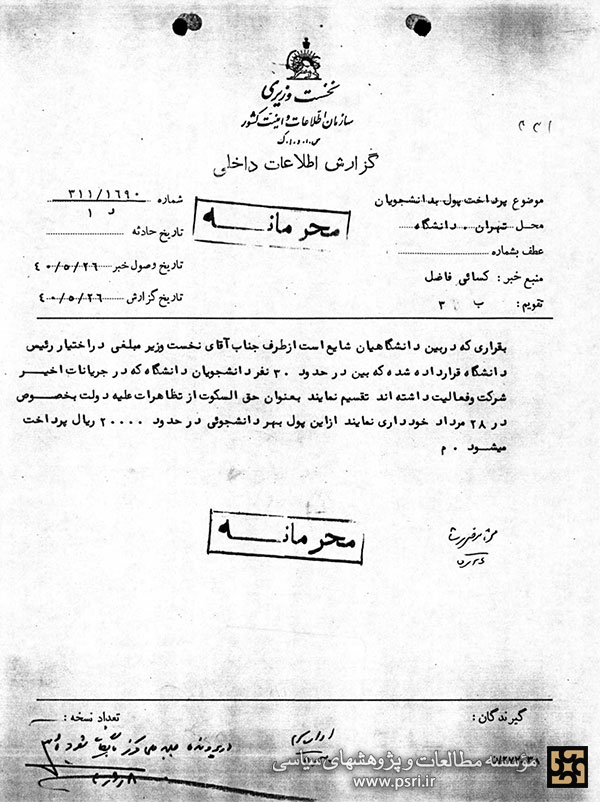 نخست وزیری
سازمان اطلاعات و امنیت کشور
س.ا.و.ا.ک
گزارش اطلاعات داخلی
شماره ۳۱۱/۱۶۹۰
د ۱
موضوع پرداخت پول بدانشجویان
محل تهران . دانشگاه
محرمانه
تاریخ حادثه
عطف بشماره
تاریخ وصول خبر ۴۰/۵/۲۶
منبع خبر : کسائی فاضل
تاریخ گزارش ۴۰/۵/۲۶
تقویم : ب ۳
بقراری که دربین دانشگاهیان شایع است ازطرف جناب آقای نخست وزیر مبلغی دراختیار رئیس
دانشگاه قرارداده شده که بین در حدود ۳۰ نفر دانشجویان دانشگاه که در جریانات اخیر
شرکت وفعالیت داشته اند تقسیم نمایند بعنوان حق السکوت از تظاهرات علیه دولت بخصوص
در ۲۸ مرداد خودداری نمایند ازاین پول بهر دانشجوئی در حدود ۲۰۰۰۰ ریال پرداخت
میشود ۰ م
محرمانه
گیرندگان :
تعداد نسخه :
موسسه مطالعات و پژوهشهای سیاسی
www.psri.ir